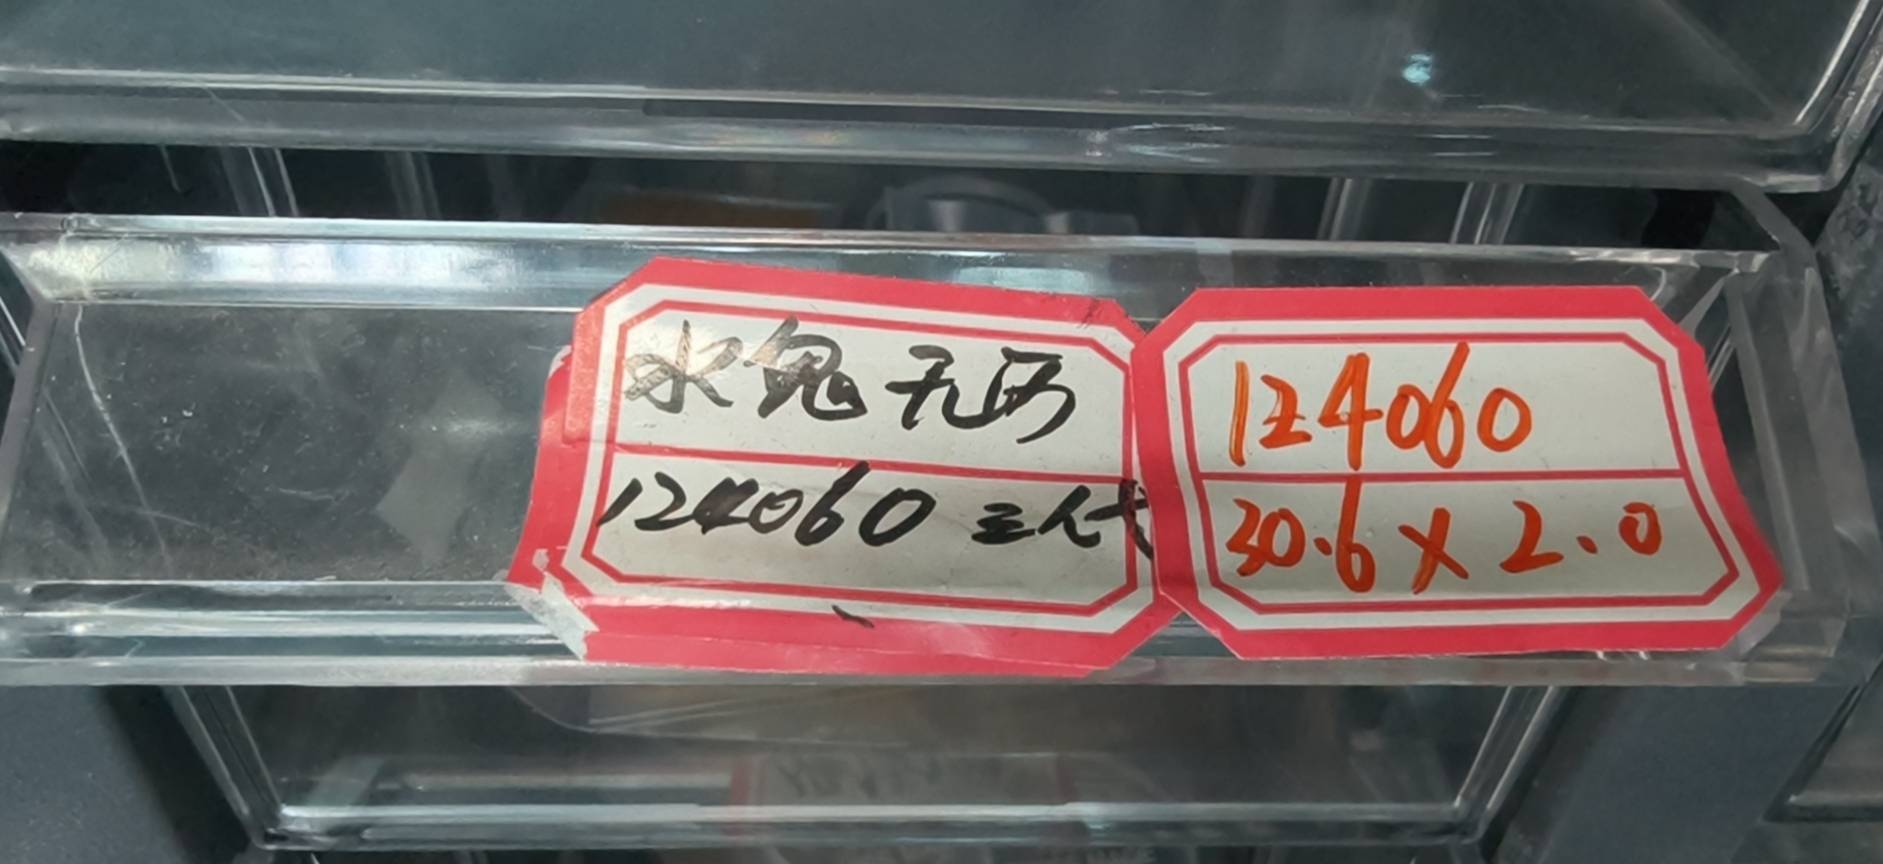 水鬼无历
124060 三代
124060
30.6×2.0